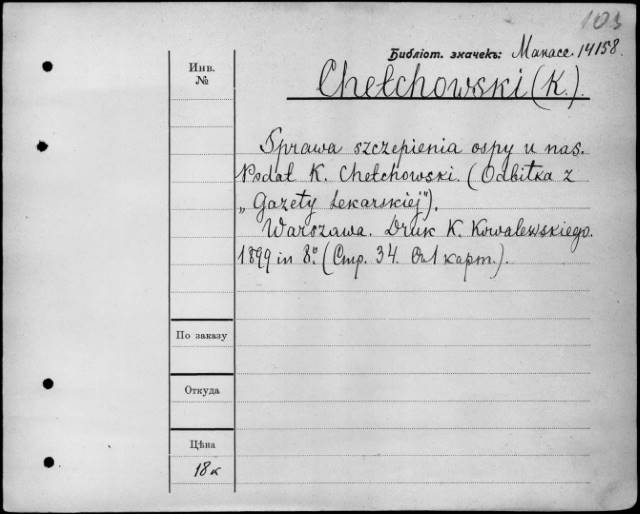 103
Библіот. значекъ: Манасе. 14158.
Инв.
№
Chełchowski (K.).
Sprawa szczepienia ospy u nas.
Podał K. Chełchowski. (Odbitka z
„Gazety Lekarskiej").
Warszawa. Druk K. Kowalewskiego.
1899 in 8°. (Стр. 34. Съ 1 карт.).
По заказу
Откуда
Цѣна
18к